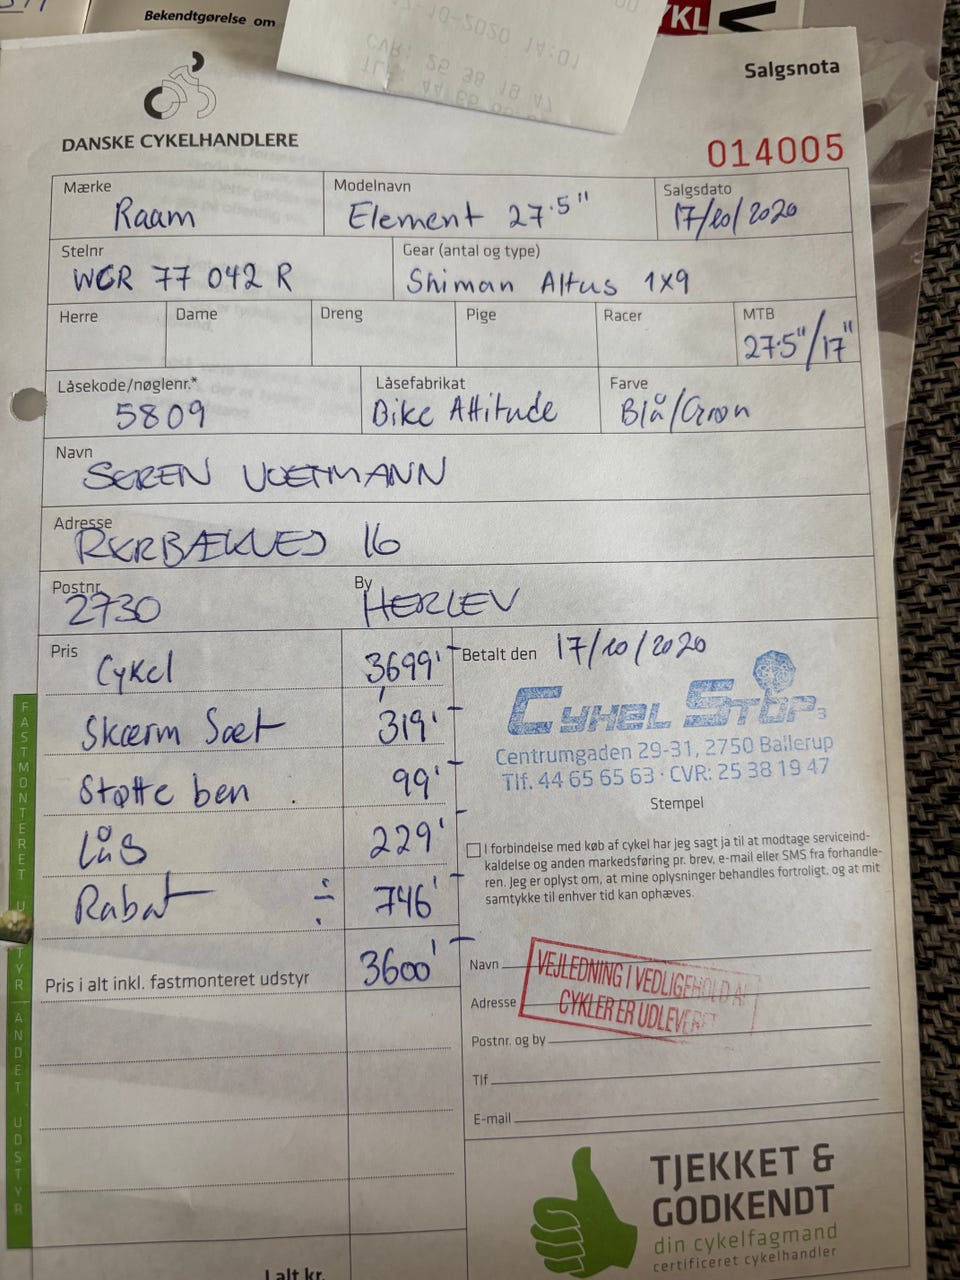 Bekendtgørelse om
17-10-2020 14:01
CVR: 25 38 19 47
Salgsnota
DANSKE CYKELHANDLERE
014005
Mærke Modelnavn Salgsdato
Raam Element 27.5" 17/10/2020
Stelnr Gear (antal og type)
WCR 77 042 R Shiman Altus 1x9
Herre Dame Dreng Pige Racer MTB
27.5"/17"
Låsekode/nøglenr.* Låsefabrikat Farve
5809 Bike Attitude Blå/Grøn
Navn
SØREN VOETMANN
Adresse
16
Postnr. By
2730 HERLEV
Pris Betalt den 17/10/2020
Cykel 3699'-
Skærm Sæt 319'-
Støtte ben . 99'-
Lås 229'-
Rabat ÷ 746'-
Pris i alt inkl. fastmonteret udstyr 3600'-
CYKEL STOP
Centrumgaden 29-31, 2750 Ballerup
Tlf. 44 65 65 63 · CVR: 25 38 19 47
Stempel
I forbindelse med køb af cykel har jeg sagt ja til at modtage serviceind-
kaldelse og anden markedsføring pr. brev, e-mail eller SMS fra forhandle-
ren. Jeg er oplyst om, at mine oplysninger behandles fortroligt, og at mit
samtykke til enhver tid kan ophæves.
Navn
Adresse
Postnr. og by
Tlf
E-mail
VEJLEDNING I VEDLIGEHOLD AF
CYKLER ER UDLEVERET
FASTMONTERET UDSTYR
ANDET UDSTYR
TJEKKET &
GODKENDT
din cykelfagmand
certificeret cykelhandler
I alt kr.